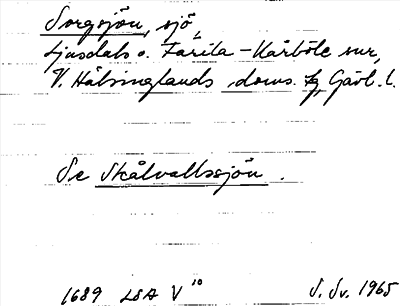 Sorgsjön, sjö,
Ljusdals o. Färila-Kårböle snr,
V. Hälsinglands doms. Gävl. l.
Se Skålvallssjön.
1689 LSA V 10 S. Sv. 1965